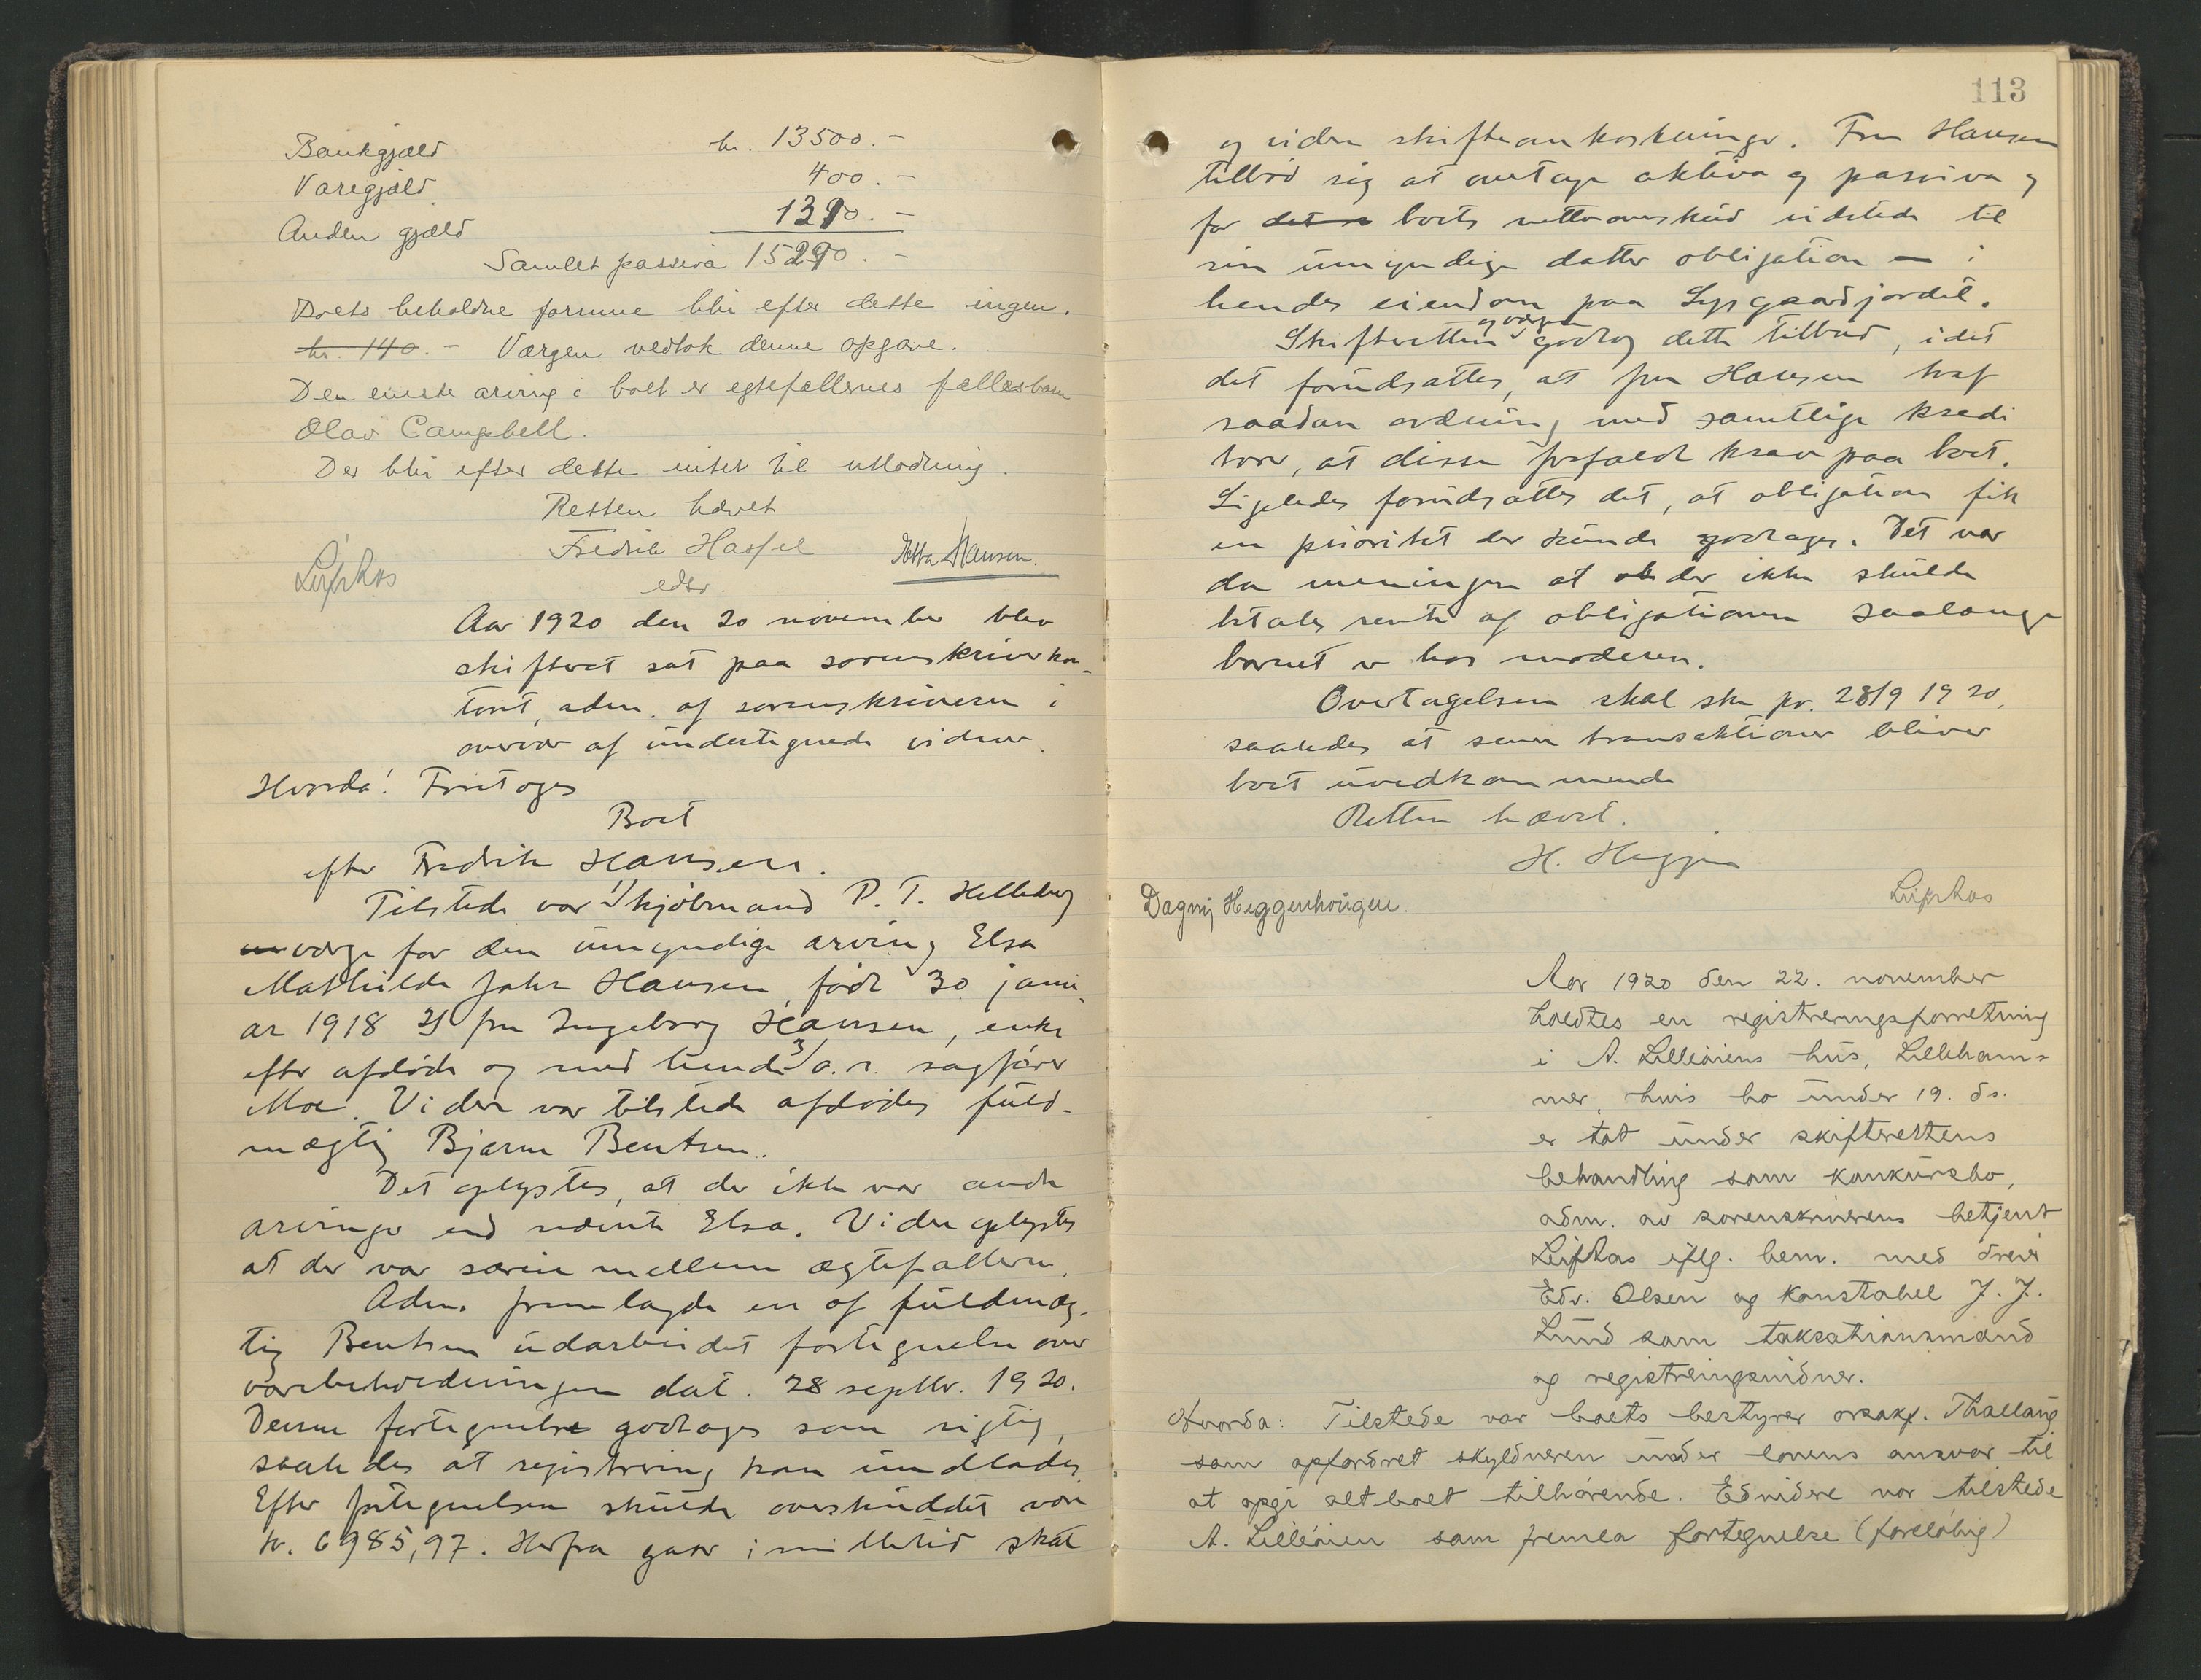 Bankgjæld kr. 13500.-
Varegjæld 400.-
Anden gjæld 1390.-
Samlet passiva 15290.-
Boets beholdne formue blir efter dette ingen.
kr. 140.- Værgen vedtok denne opgave.
Den eneste arving i boet er egtefællernes fællesbarn
Olav Campbell.
Der blir efter dette intet til utlodning.
Retten hævet
Fredrik Hassel
edsv.
Hansen.
Leiphas
Aar 1920 den 20 november blev
skifteret sat paa sorenskriverkon-
toret, adm. af sorenskriveren i
overvær af undertegnede vidner.
Hvorda! Foretoges
Boet
efter Fredrik Hansen.
Tilstede var 1) kjøbmand P. T. Helleberg
værge for den umyndige arving Elsa
Mathilde Hansen, født 30 janu-
ar 1918 2) fru Ingeborg Hansen, enke
efter afdøde og med hende 3) o.r. sagfører
Moe. Videre var tilstede afdødes fuld-
mægtig Bjarne Bentsen.
Det oplystes, at der ikke var andre
arvinger end nævnte Elsa. Videre oplystes
at der var særeie mellem ægtefællerne.
Adm. fremlagde en af fuldmæg-
tig Bentsen udarbeidet fortegnelse over
varebeholdningen dat. 28 septbr. 1920.
Denne fortegnelse godtoges som rigtig,
saaledes at registrering kan undlades.
Efter fortegnelsen skulde overskuddet være
kr. 6985,97. Herfra gaar imidlertid skat
113
og videre skifteomkostninger. Fru Hansen
tilbød sig at overtage aktiva og passiva og
for det boets nettooverskud udstede til
sin umyndige datter obligation i
hendes eiendom paa Lysgaardjordet.
Skifteretten og værgen godtog dette tilbud, idet
det forudsattes, at fru Hansen traf
saadan ordning med samtlige kredi
torer, at disse frafaldt krav paa boet.
Ligeledes forudsattes det, at obligation fik
en prioritet der kunde godtages. Det var
da meningen at der ikke skulde
betales rente af obligationen saalænge
barnet er hos moderen.
Overtagelsen skal ske pr. 28/9 1920,
saaledes at senere transaktioner bliver
boet uvedkommende
Retten hævet.
H.
Dagny Heggenhougen.
Leiphas
Aar 1920 den 22. november
holdtes en registreringsforretning
i A. Lilleøiens hus, Lilleham-
mer, hvis bo under 19. ds.
er tat under skifterettens
behandling som konkursbo,
adm. av sorenskriverens betjent
Leiphas iflg. bem. med
Edv. Olsen og konstabel J. J.
Lund som taksationsmænd
og registreringsvidner.
Hvorda: Tilstede var boets bestyrer orsakf. Thallaug
som opfordret skyldneren under lovens ansvar til
at opgi alt boet tilhørende. Edvidere var tilstede
A. Lilleøien som fremla fortegnelse (foreløbig)